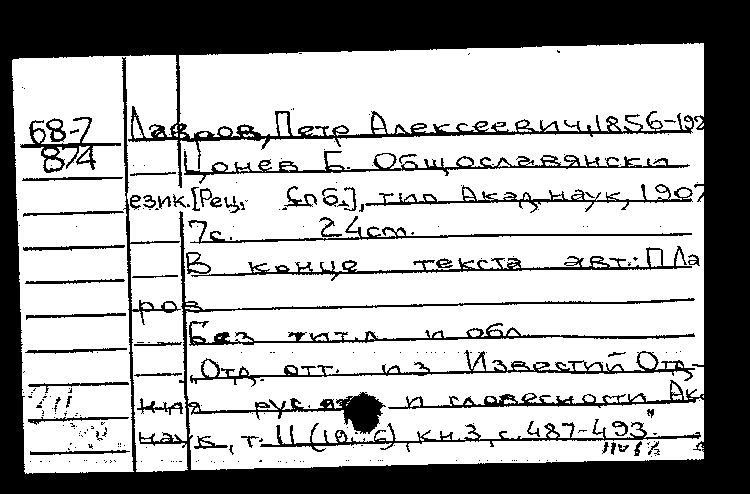 68-7
874
Лавров, Петр Алексеевич, 1856-192
Цонев Б. Общославянски
език. [Рец. Спб.], тип. Акад. наук, 1907
7с. 24 cm.
В конце текста авт.: П Ла
ров
Без тит. л. и обл
„Отд. отт. из Известий Отд-
ния рус. и словесности Ак.
наук, т. II (19 6), кн. 3, с. 487-493"